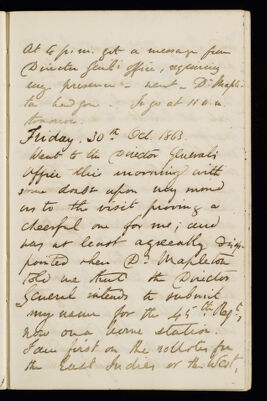 At 4 p.m. got a message from
Director Genl's office, requiring
my presence - went - Dr Maple-
ton had gone. To go at 11 a.m.
tomorrow
Friday. 30th Oct. 1863.
Went to the Director Generals
Office this morning with
some doubt upon my mind
as to the visit proving a
cheerful one for me; and
was at least agreeably disap-
pointed when Dr Mapleton
told me that the Director
General intends to submit
my name for the 45th Regt,
now on a home station!
I am first on the roster for
the East Indies or the West,